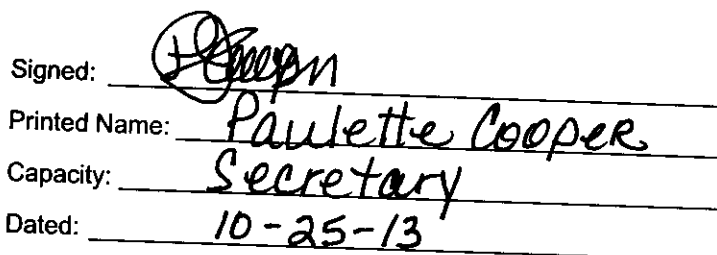 Signed:
Printed Name: Paulette Cooper
Capacity: Secretary
Dated: 10-25-13